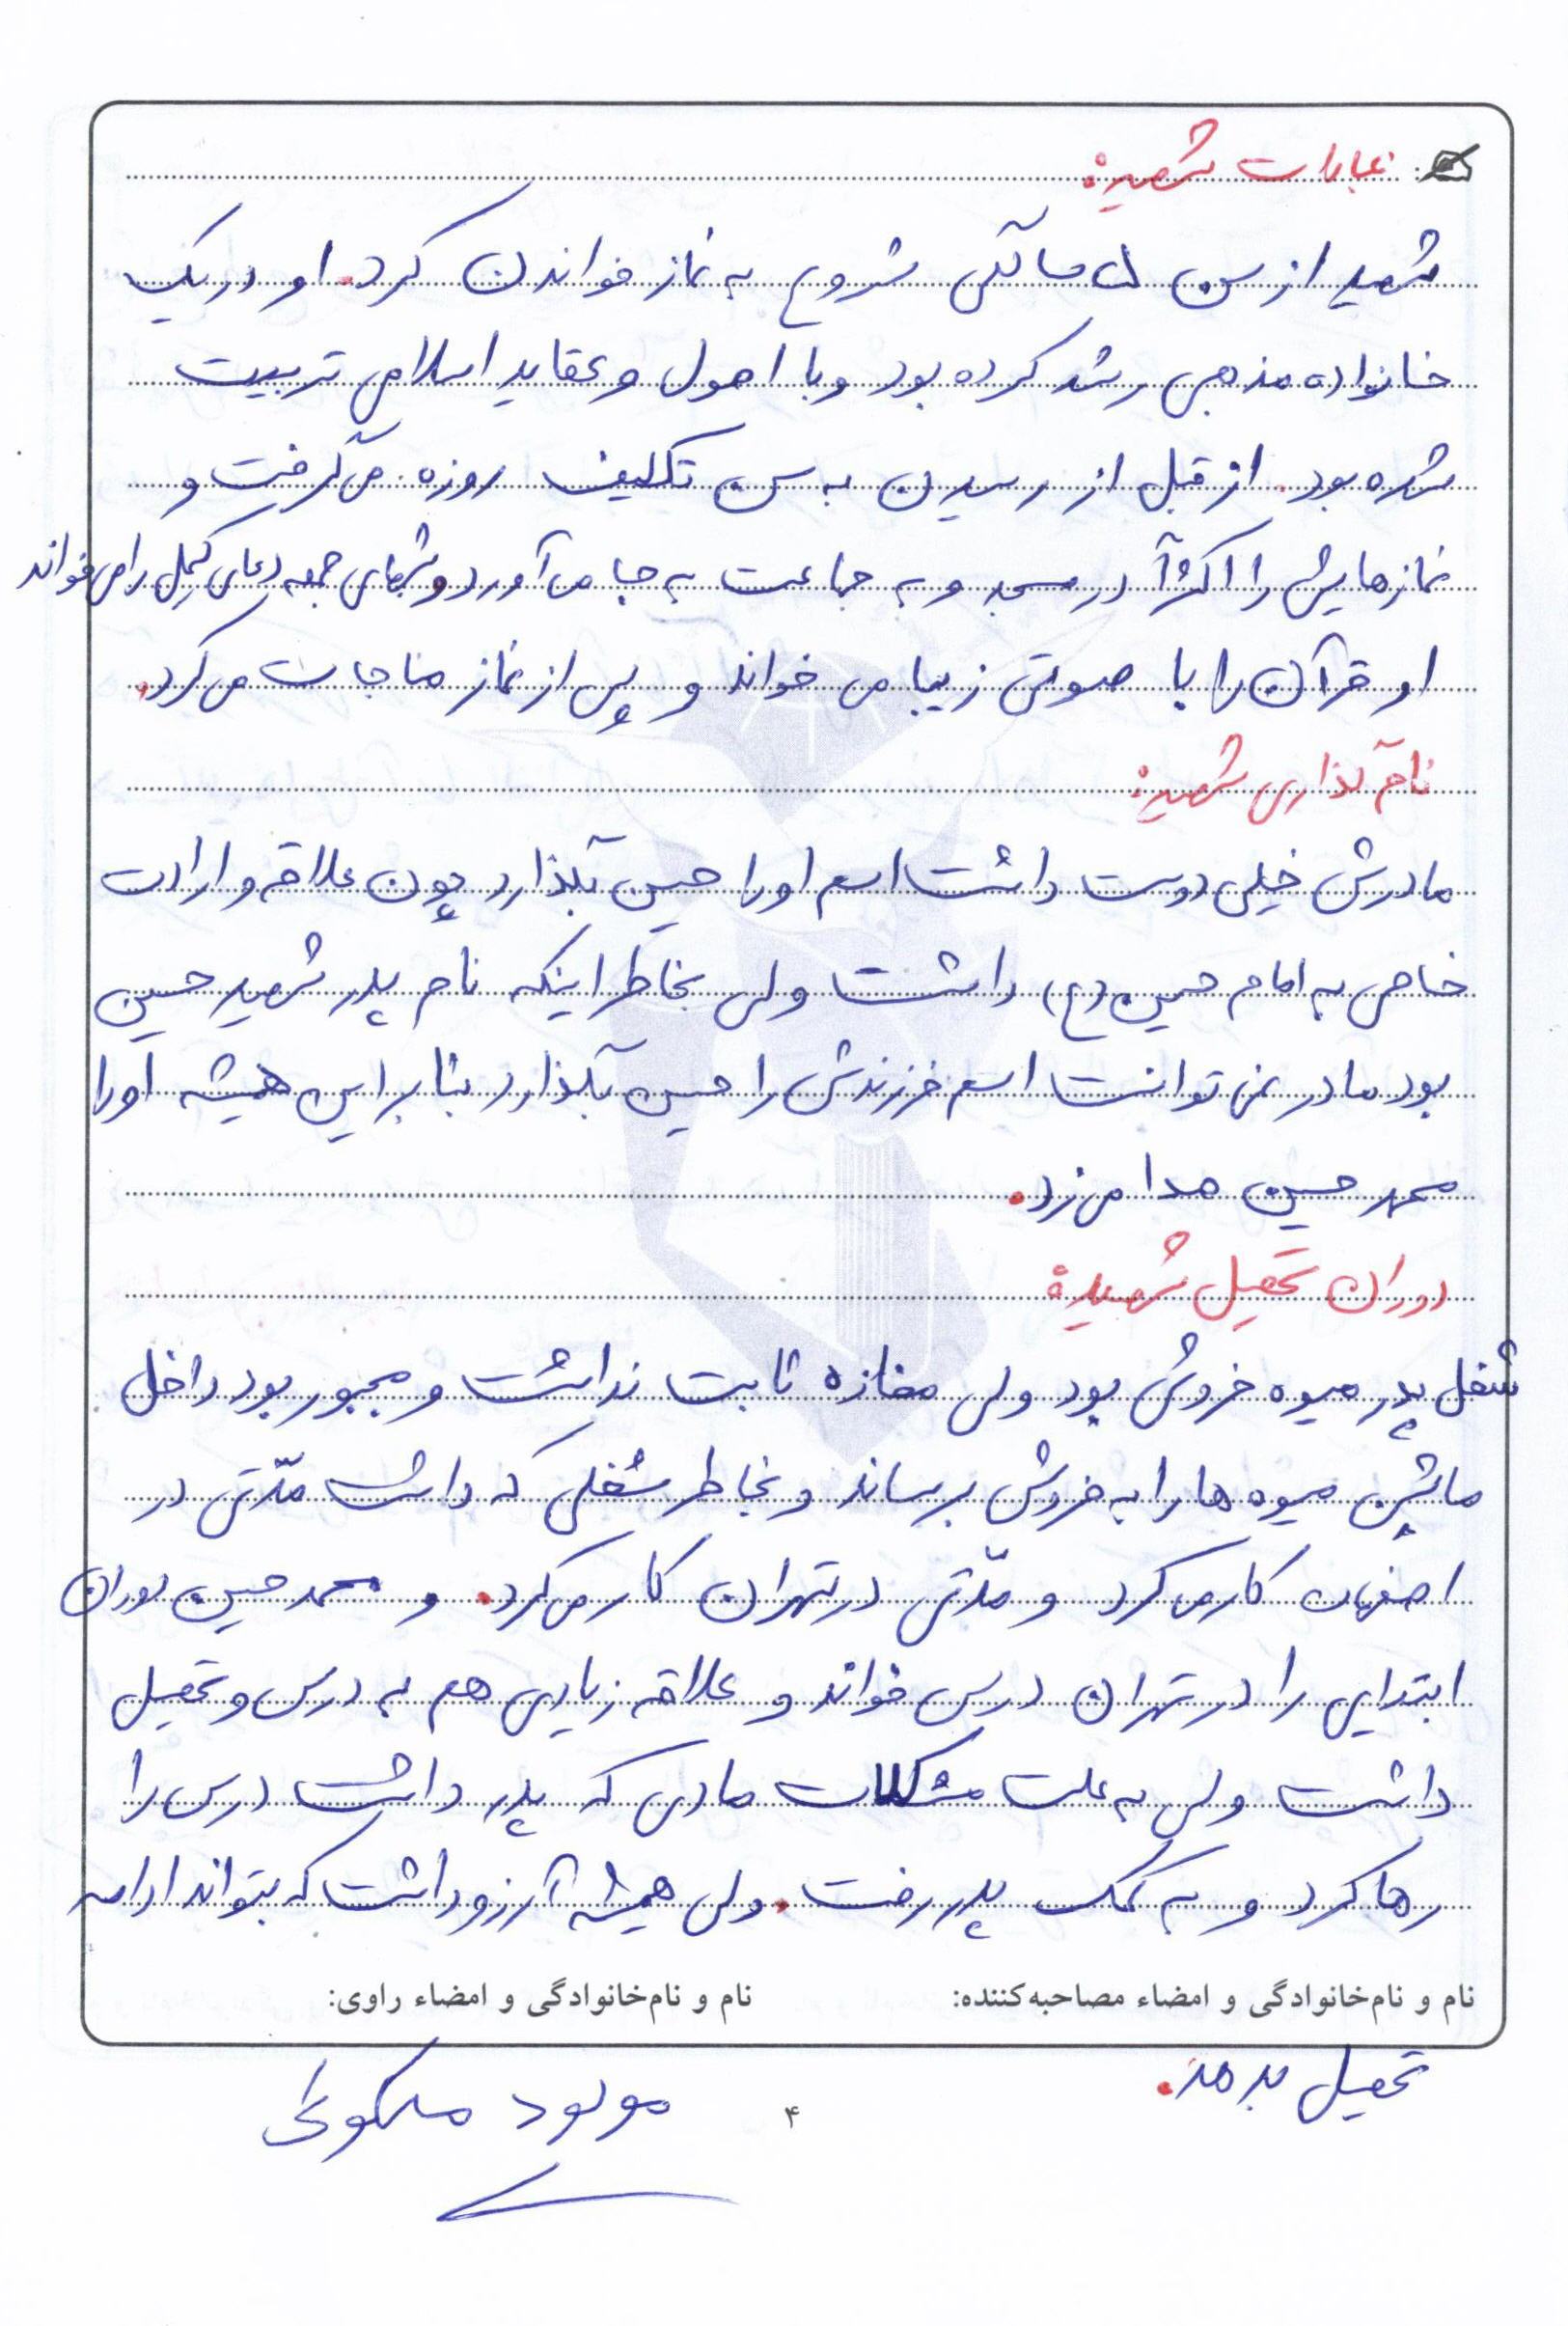 عبادات شهید:
شهید از سن ۵ سالگی شروع به نماز خواندن کرد. او در یک
خانواده مذهبی رشد کرده بود و با اصول و عقاید اسلامی تربیت
شده بود. از قبل از رسیدن به سن تکلیف روزه می گرفت و
نمازهایش را اکثراً در مسجد و به جماعت به جا می آورد و شبهای جمعه دعای کمیل را می خواند
او قرآن را با صوتی زیبا می خواند و پس از نماز مناجات می کرد.
نام گذاری شهید:
مادرش خیلی دوست داشت اسم او را حسین بگذارد چون علاقه و ارادت
خاصی به امام حسین (ع) داشت ولی بخاطر اینکه نام پدر شهید حسین
بود مادر نمی توانست اسم فرزندش را حسین بگذارد بنابراین همیشه او را
محمد حسین صدا می زد.
دوران تحصیل شهید:
شغل پدر میوه فروش بود ولی مغازه ثابت نداشت و مجبور بود داخل
ماشین میوه ها را به فروش برساند و بخاطر شغلی که داشت مدّتی در
اصفهان کار می کرد و مدّتی در تهران کار می کرد. و محمد حسین دوران
ابتدایی را در تهران درس خواند و علاقه زیادی هم به درس و تحصیل
داشت ولی به علت مشکلات مادی که پدر داشت درس را
رها کرد و به کمک پدر رفت. ولی همیشه آرزو داشت که بتواند ادامه
نام و نام‌خانوادگی و امضاء مصاحبه‌کننده: نام و نام‌خانوادگی و امضاء راوی:
تحصیل بدهد.
مولود
۴